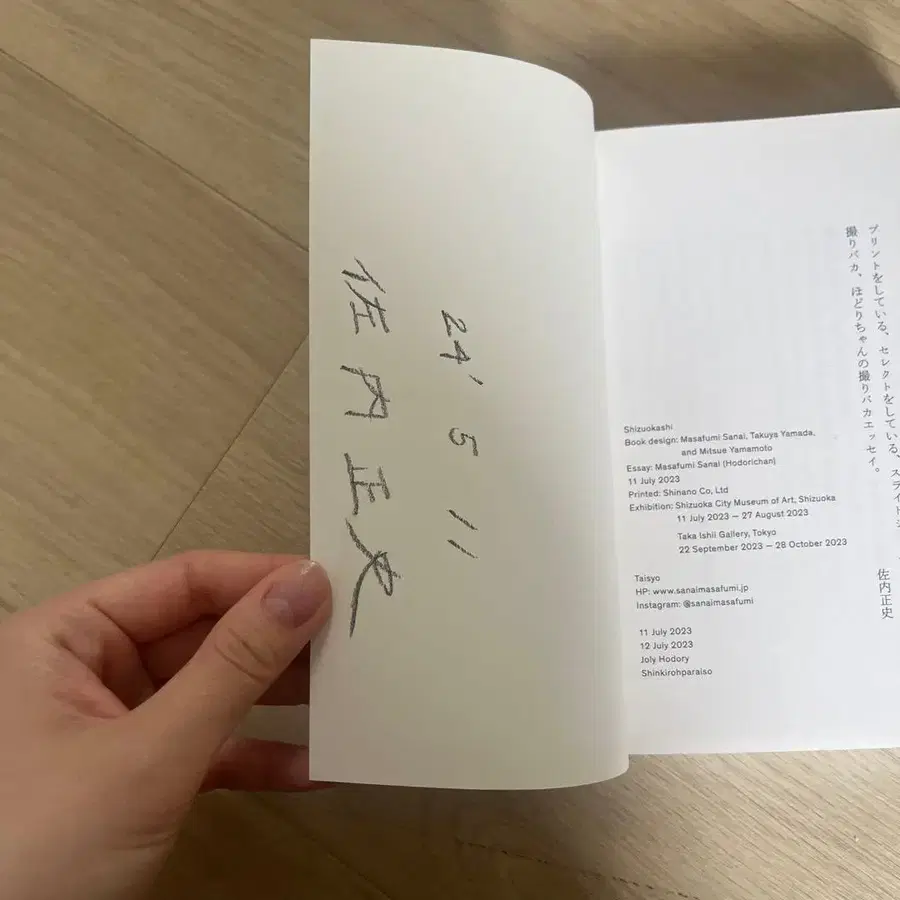 24' 5 11
佐内正史
プリントをしている、セレクトをしている、スライド
撮りバカ、ほどりちゃんの撮りバカエッセイ。
佐内正史
Shizuokashi
Book design: Masafumi Sanai, Takuya Yamada,
and Mitsue Yamamoto
Essay: Masafumi Sanai (Hodorichan)
11 July 2023
Printed: Shinano Co, Ltd
Exhibition: Shizuoka City Museum of Art, Shizuoka
11 July 2023 — 27 August 2023
Taka Ishii Gallery, Tokyo
22 September 2023 — 28 October 2023
Taisyo
HP: www.sanaimasafumi.jp
Instagram: @sanaimasafumi
11 July 2023
12 July 2023
Joly Hodory
Shinkirohparaiso